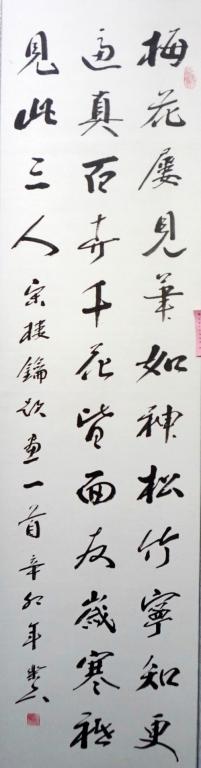 梅花屢見筆如神松竹寧知更
逼真百卉千花皆面友歲寒祗
見此三人 宋楼鑰題畫一首辛卯年